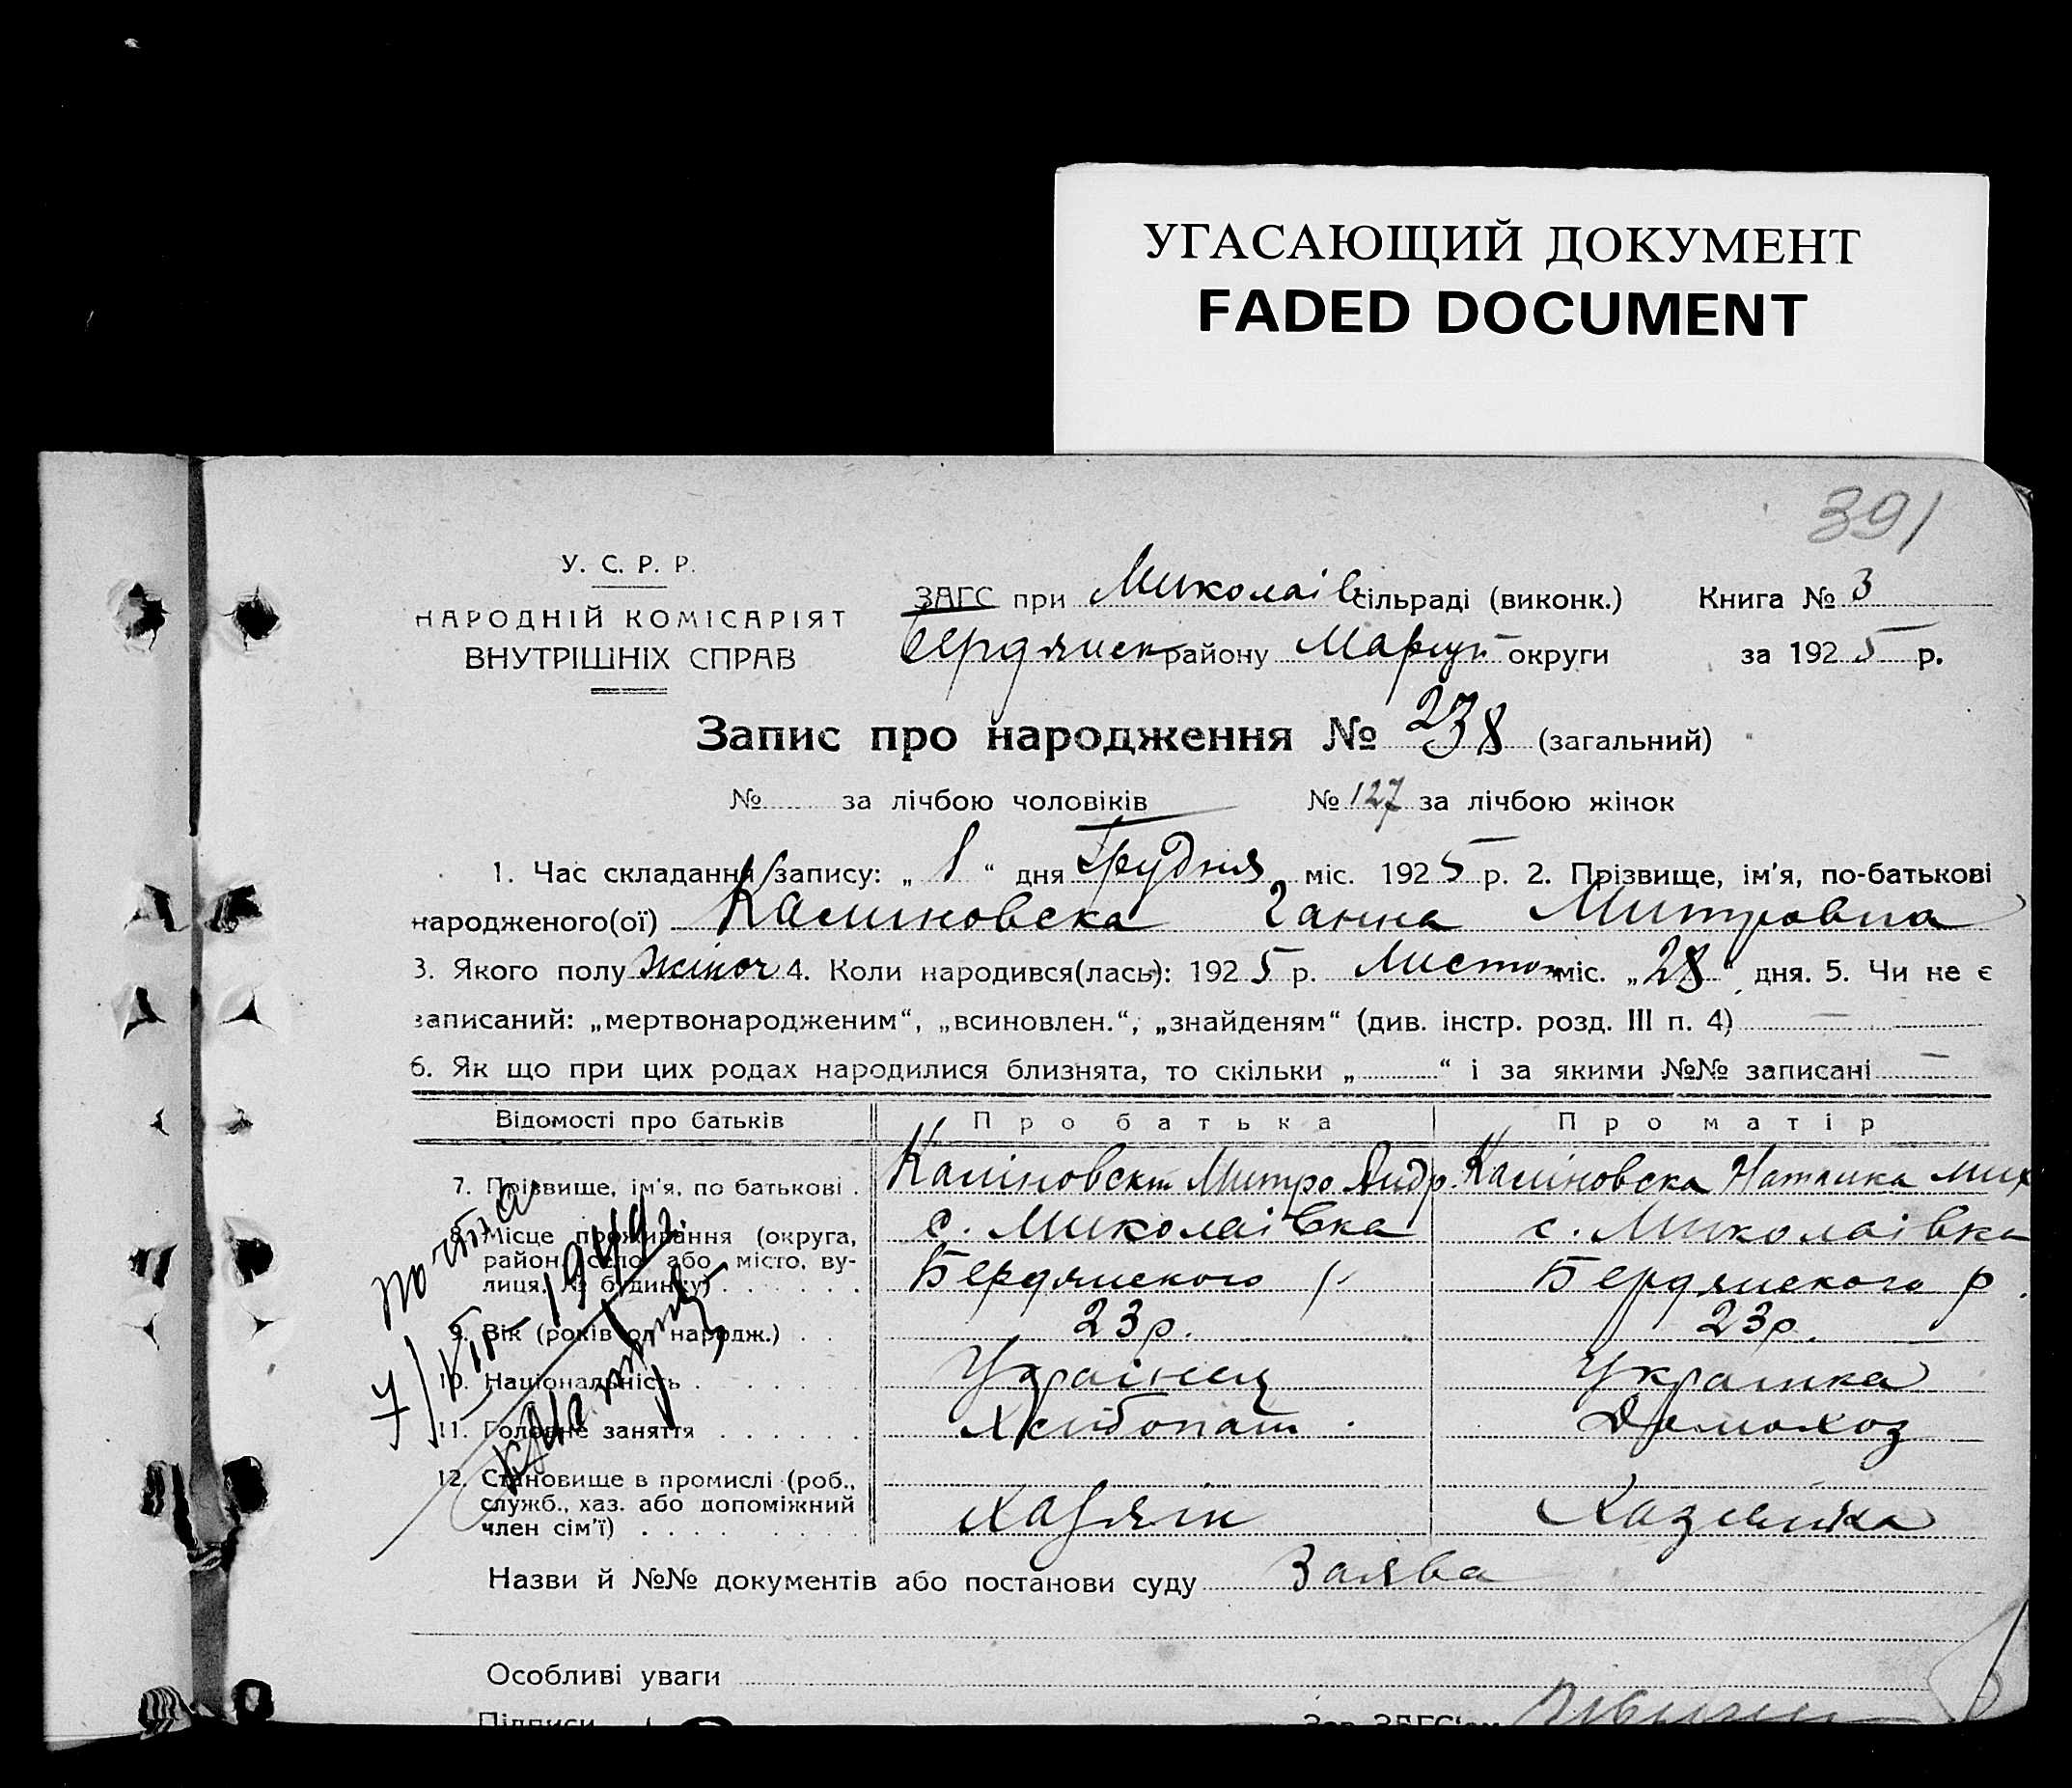 УГАСАЮЩИЙ ДОКУМЕНТ
FADED DOCUMENT
391
У. С. Р. Р.
НАРОДНІЙ КОМІСАРІЯТ
ВНУТРІШНІХ СПРАВ
ЗАГС при Миколаів сільраді (виконк.) Книга № 3
Бердянск району Маріуп округи за 1925 р.
Запис про народження № 238 (загальний)
№ за лічбою чоловіків № 127 за лічбою жінок
1. Час складання запису: „ 1 “ дня Грудня міс. 1925 р. 2. Прізвище, ім'я, по-батькові
народженого(ої) Калиновска Ганна Митровна
3. Якого полу жіноч 4. Коли народився(лась): 1925 р. Листоп міс. „28“ дня. 5. Чи не є
записаний: „мертвонародженим“, „всиновлен.“, „знайденям“ (див. інстр. розд. III п. 4) —
6. Як що при цих родах народилися близнята, то скільки „ “ і за якими №№ записані —
Відомості про батьків Про батька Про матір
7. Прізвище, ім'я, по батькові . Каліновскі Митро Андр. Каліновска Наталка Мих
8. Місце проживання (округа, с. Миколаівка с. Миколаівка
район, село або місто, ву-
лиця, № будинку) . . . . . . Бердянского р. Бердянского р.
9. Вік (років од народж.) . . 23р. 23р.
10. Національність . . . . . Украінець Украінка
11. Головне заняття . . . . . . Хлібопаш Домохоз
12. Становище в промислі (роб.,
служб., хаз. або допоміжний
член сім'ї) . . . . . . Хазяін Хазяйка
почта
7/VII-1944г.
Назви й №№ документів або постанови суду Заява
Особливі уваги
Підписи Зав. ЗАГС'ом